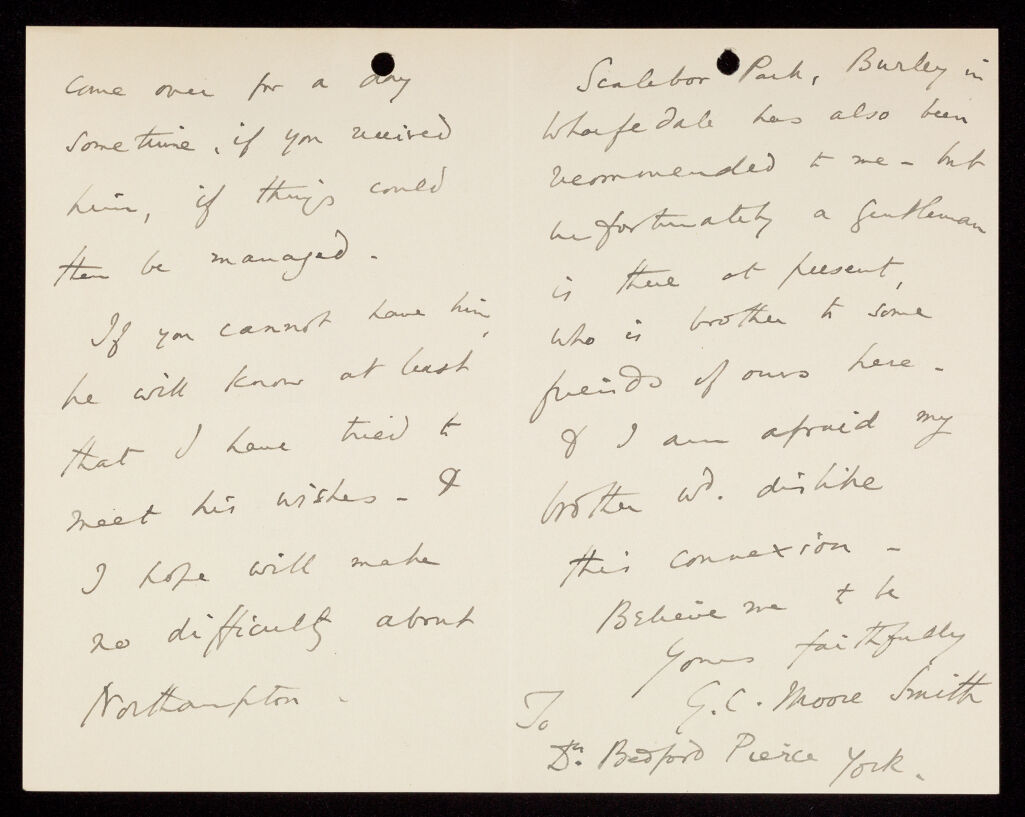 come over for a day
sometime, if you received
him, if things could
then be managed.
If you cannot have him,
he will know at least
that I have tried to
meet his wishes - &
I hope will make
no difficulty about
Northampton.
Scalebor Park, Burley in
Wharfedale has also been
recommended to me - but
unfortunately a gentleman
is there at present,
who is brother to some
friends of ours here -
& I am afraid my
brother wd. dislike
this connexion -
Believe me to be
Yours faithfully
G.C. Moore Smith
To
Dr. Bedford Pierce York.